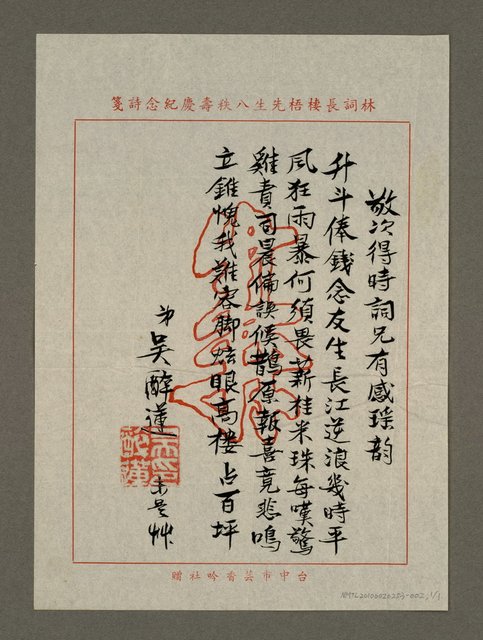 林詞長棲梧先生八秩壽慶紀念詩箋
敬次得時詞兄有感瑤韵
升斗俸錢念友生長江逆浪幾時平
風狂雨暴何須畏薪桂米珠每嘆驚
雞責司晨偏誤候鵲原報喜竟悲鳴
立錐愧我難容脚炫眼高樓占百坪
弟吳醉蓮未是艸
台中市芸香吟社贈